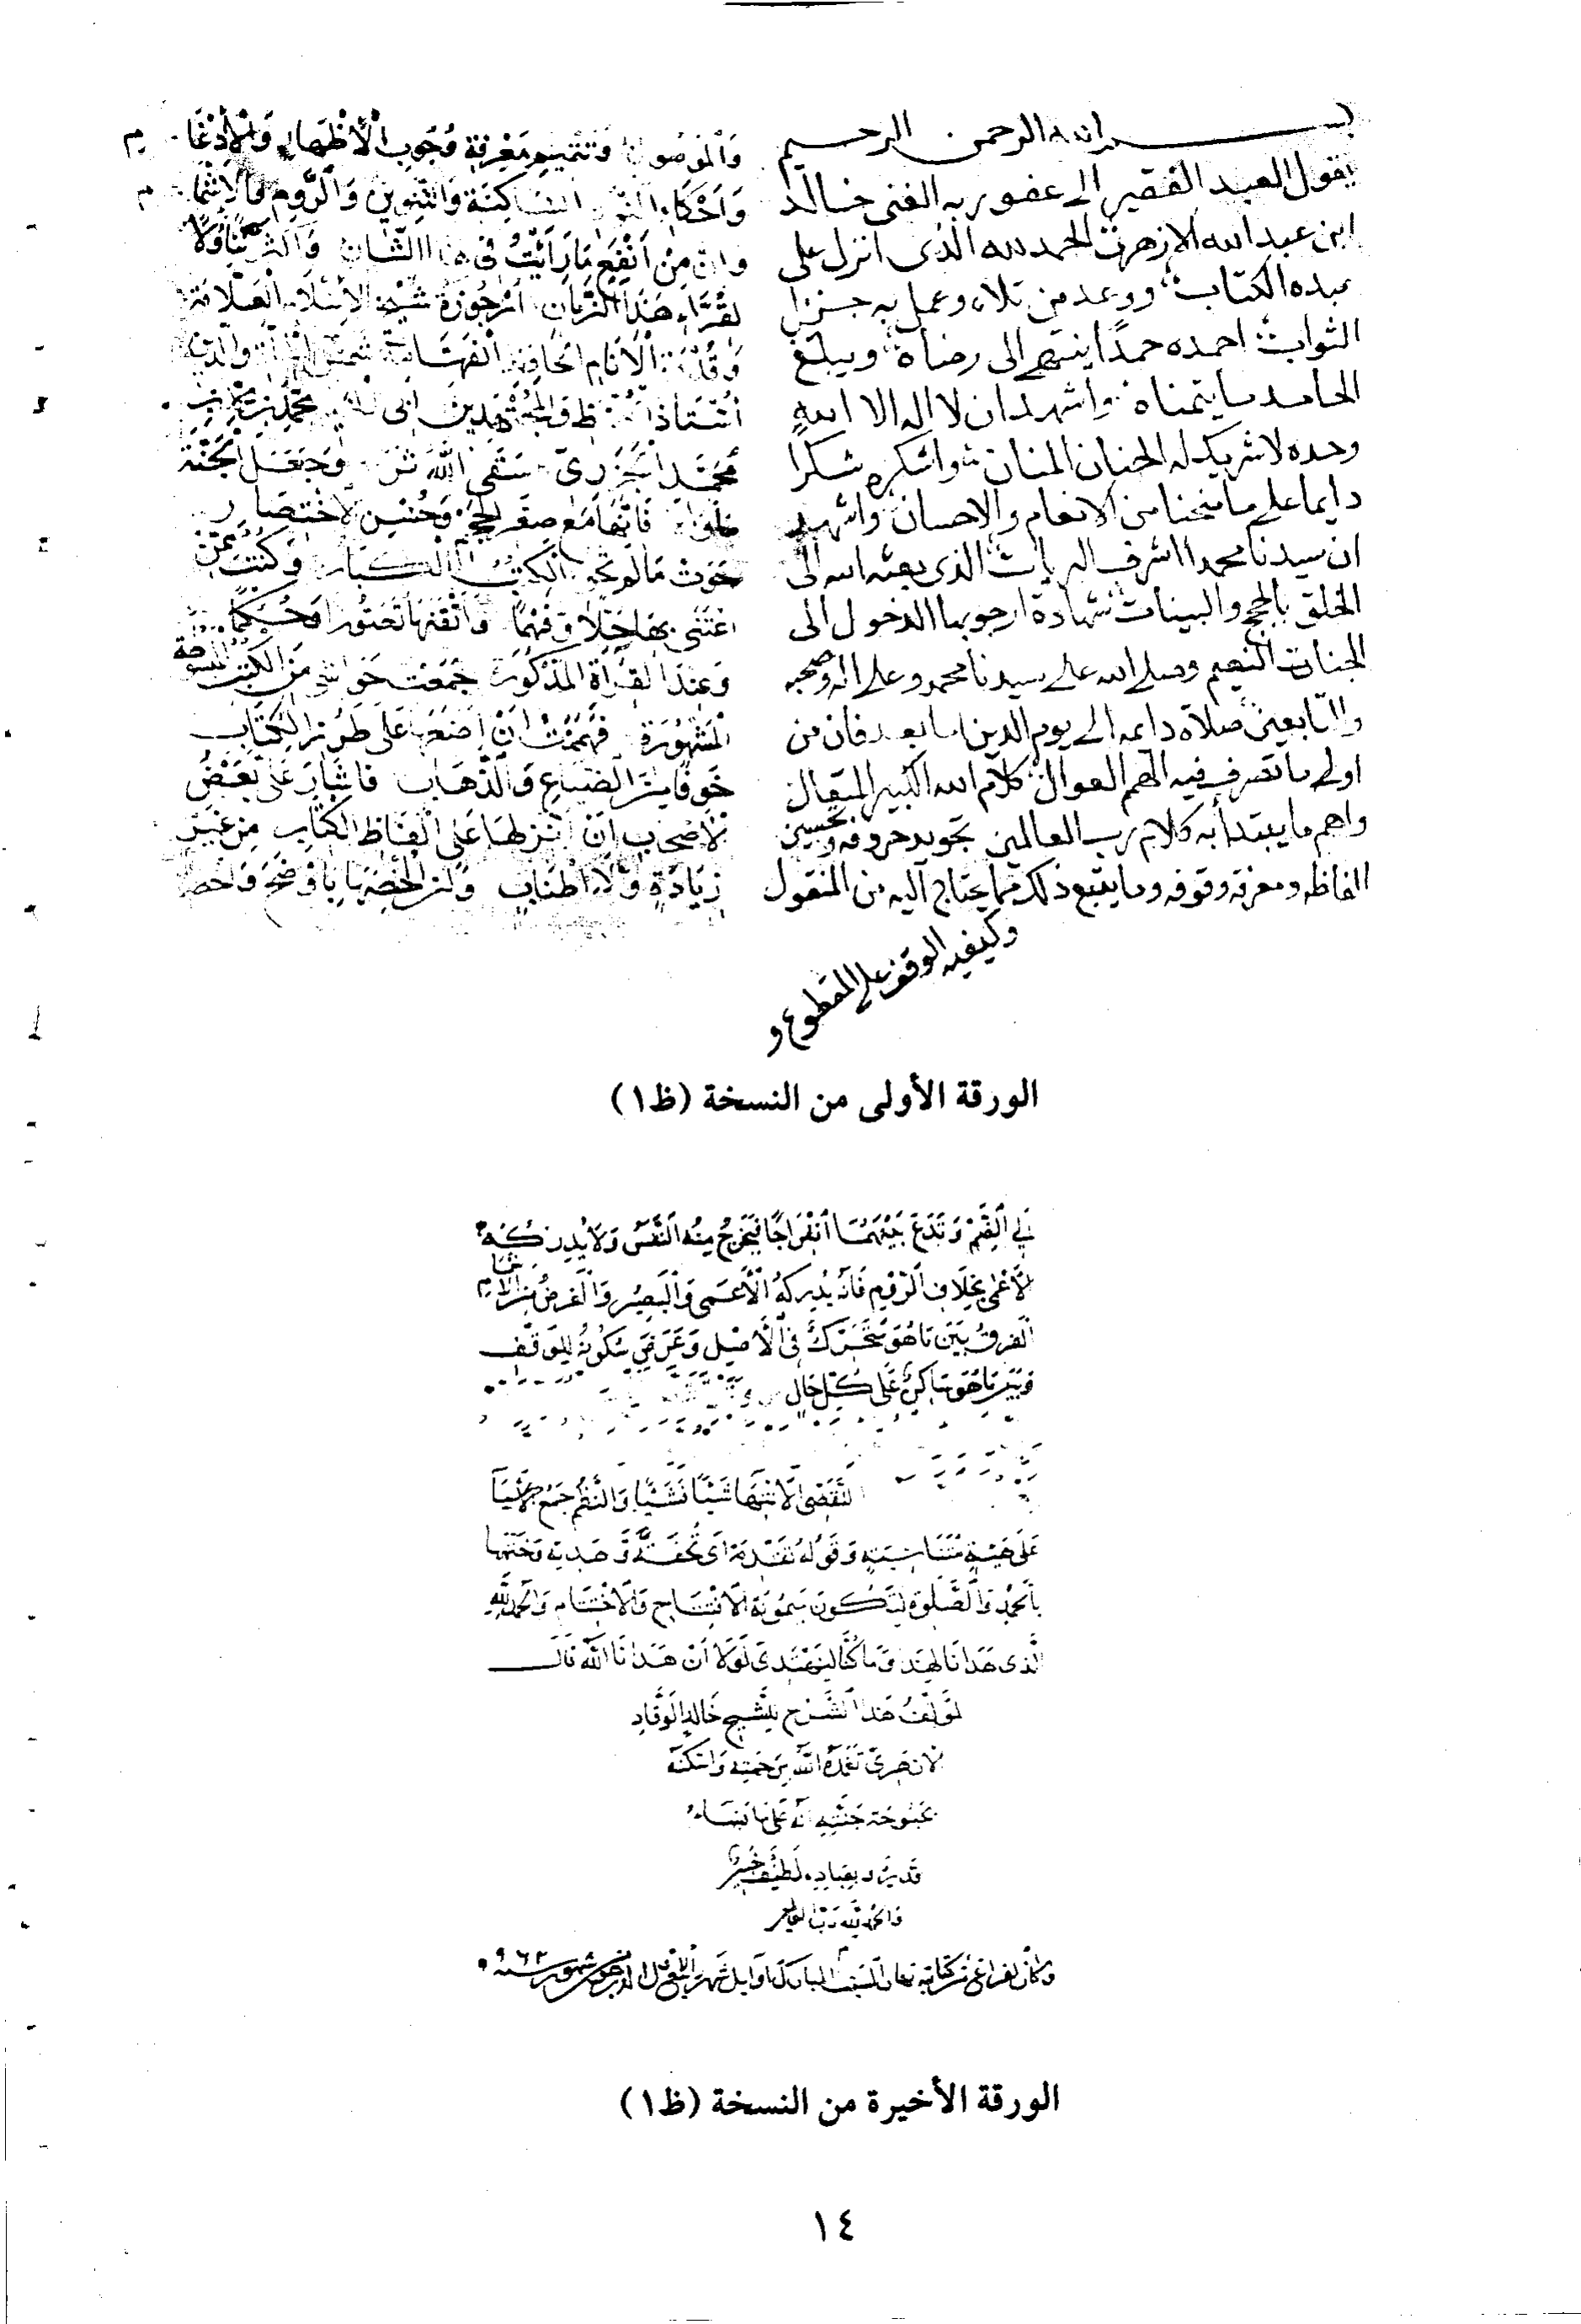 بسم الله الرحمن الرحيم
يقول العبد الفقير الى عفو ربه الغني خالد
ابن عبد الله الازهري الحمد لله الذي انزل على
عبده الكتاب ووعد من تلاه وعمل به جزيل
الثواب احمده حمدًا ينتهي الى رضاه ويبلغ
الحامد ما يتمناه واشهد ان لا اله الا الله
وحده لا شريك له الحنان المنان واشكره شكرا
دايما على ما منحنا من الانعام والاحسان واشهد
ان سيدنا محمدا اشرف البريات الذي بعثه الله الى
الخلق بالحجج والبينات شهادة ارجو بها الدخول الى
الجنات النعيم وصلى الله على سيدنا محمد وعلى اله وصحبه
والتابعين صلاة دايمه الى يوم الدين اما بعد فان من
اولى ما تصرف فيه الهمم العوال كلام الله الكبير المتعال
واهم ما يبتدأ به كلام رب العالمين تجويد حروفه وتحسين
الفاظه ومعرفة وقوفه وما يتبع ذلك مما يحتاج اليه من المنقول
وكيفيه الوقف على المقطوع و
وَالْمَوْصُول وَتَتْمِيمِ مَعْرِفَةِ وُجُوبِ الْأَظْهَارِ وَالْأِدْغَام
وَاَحْكَام النون السَّاكِنَةِ وَالتَّنْوِينِ وَالرَّوْمِ وَالْاِشْمَام
وان مِنْ اَنْفَعِ مَا رَاَيْتُ فِي هذا الشَّان
لقُرَّاءِ هَذَا الزَّمَان اُرْجُوزَةُ شَيْخ الاِسْلَام الْعَلَّامَة
وَقُدْوَة الْاَنَام
مُحَمَّد الجَزَرِيّ سَقَى اللّٰهُ ثَرَاه وَجَعَلَ الْجَنَّةَ
فَاِنَّهَا مَعَ صِغَرِ الْحَجْمِ وَحُسْنِ الْاِخْتِصَار
حَوَتْ مَا لَمْ تَحْوِهِ الْكُتُبُ الْكِبَار وَكُنْتُ مِمَّنْ
اعْتَنَى بِهَا حِلًّا وَفَهْمًا وَاَتْقَنَهَا
وَعِنْدَ الْقِرَاةِ الْمَذْكُورَة جَمَعْتُ حَوَاشِيَ مِنَ الْكُتُبِ
الْمَشْهُورَةِ فَهَمَمْتُ اَنْ اَضَعَهَا عَلَى طُرَرِ الْكِتَاب
خَوْفًا مِنَ الضَّيَاعِ وَالذَّهَاب فَاَشَارَ عَلَيَّ بَعْضُ
الْاَصْحَاب اَنْ اُنَزِّلَهَا عَلَى اَلْفَاظِ الْكِتَابِ مِنْ غَيْرِ
زِيَادَةٍ وَلَا اِطْنَاب
الورقة الأولى من النسخة (ظ١)
فِي الْفَمِ وَتَدَعَ بَيْنَهُمَا انْفِرَاجًا فَيَخْرُجُ مِنْهُ النَّفَسُ وَلَا يُدْرِكُهُ
الْاَعْمَى بِخِلَافِ الرَّوْمِ فَاَنَّهُ يُدْرِكُهُ الْاَعْمَى وَالْبَصِيرُ وَالْغَرَضُ مِنَ الْاِشْمَام
الْفَرْقُ بَيْنَ مَا هُوَ مُتَحَرِّكٌ فِي الْاَصْلِ وَعَرَضَ سُكُونُهُ لِلْوَقْفِ
وَبَيْنَ مَا هُوَ سَاكِنٌ عَلَى كُلِّ حَالٍ
التَّقَضِّي الْاِنْتِهَا شَيْئًا فَشَيْئًا وَالنَّظْمُ جَمْعُ الْاَشْيَا
عَلَى هَيْئَةٍ مُتَنَاسِبَةٍ وَقَوْلُهُ تَقْدِمَة اَيْ تُحْفَةً وَهَدِيَّة وَخَتَمَهَا
بِالْحَمْدِ وَالصَّلٰوةِ لِتَكُونَ مَيْمُونَةَ الْاِفْتِتَاحِ وَالْاِخْتِتَام وَالْحَمْدُ لِلّٰهِ
الَّذِي هَدَانَا لِهَذَا وَمَا كُنَّا لِنَهْتَدِيَ لَوْلَا اَنْ هَدَانَا اللّٰهُ قَالَ
مُؤَلِّفُ هَذَا الشَّرْحِ الشَّيْخ خَالِد الْوَقَّاد
الازهري تَغَمَّدَهُ اللّٰهُ بِرَحْمَتِهِ وَاَسْكَنَهُ
بُحْبُوحَةَ جَنَّتِهِ اِنَّهُ عَلَى مَا يَشَاءُ
قَدِيرٌ وَبِعِبَادِهِ لَطِيفٌ خَبِيرٌ
وَالْحَمْدُ لِلّٰهِ رَبِّ الْعَالَمِين
الورقة الأخيرة من النسخة (ظ١)
١٤